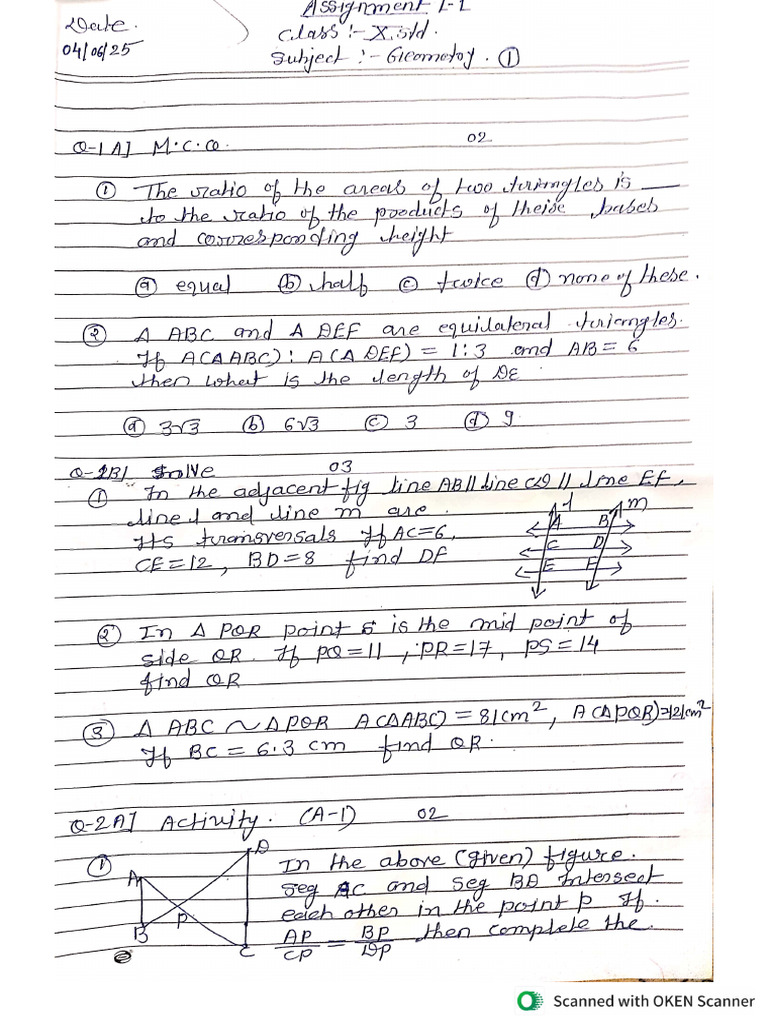 Assignment 1-1
Date.
04/06/25
Class :- X std.
Subject :- Geometry. ①
Q-1A] M.C.Q. 02
① The ratio of the areas of two triangles is ___
to the ratio of the products of theise bases
and corresponding height
ⓐ equal ⓑ half ⓒ twice ⓓ none of these.
② Δ ABC and Δ DEF are equilateral triangles.
If A(ΔABC) : A(Δ DEF) = 1:3 and AB = 6
then what is the length of DE
ⓐ 3√3 ⓑ 6√3 ⓒ 3 ⓓ 9
Q-1B] Solve 03
① In the adjacent fig line AB // line CD // line EF,
line l and line m are
its transversals If AC=6,
CE=12, BD=8 find DF
l m
A B
C D
E F
② In Δ PQR point S is the mid point of
side QR. If PQ=11, PR=17, PS=14
find QR
③ Δ ABC ~ ΔPQR A(ΔABC) = 81cm², A(ΔPQR)=121cm²
If BC = 6.3 cm find QR.
Q-2A] Activity. (A-1) 02
① In the above (given) figure.
seg AC and seg BD intersect
each other in the point P If
AP/CP = BP/DP then complete the
A D
P
B C
Scanned with OKEN Scanner